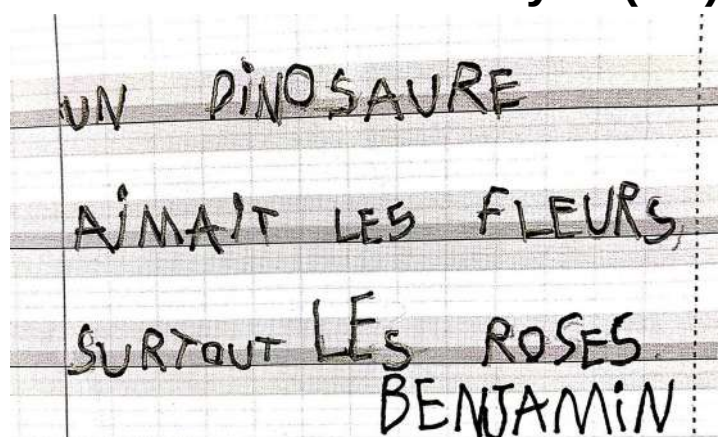 UN DINOSAURE
AIMAIT LES FLEURS,
SURTOUT LES ROSES
BENJAMIN